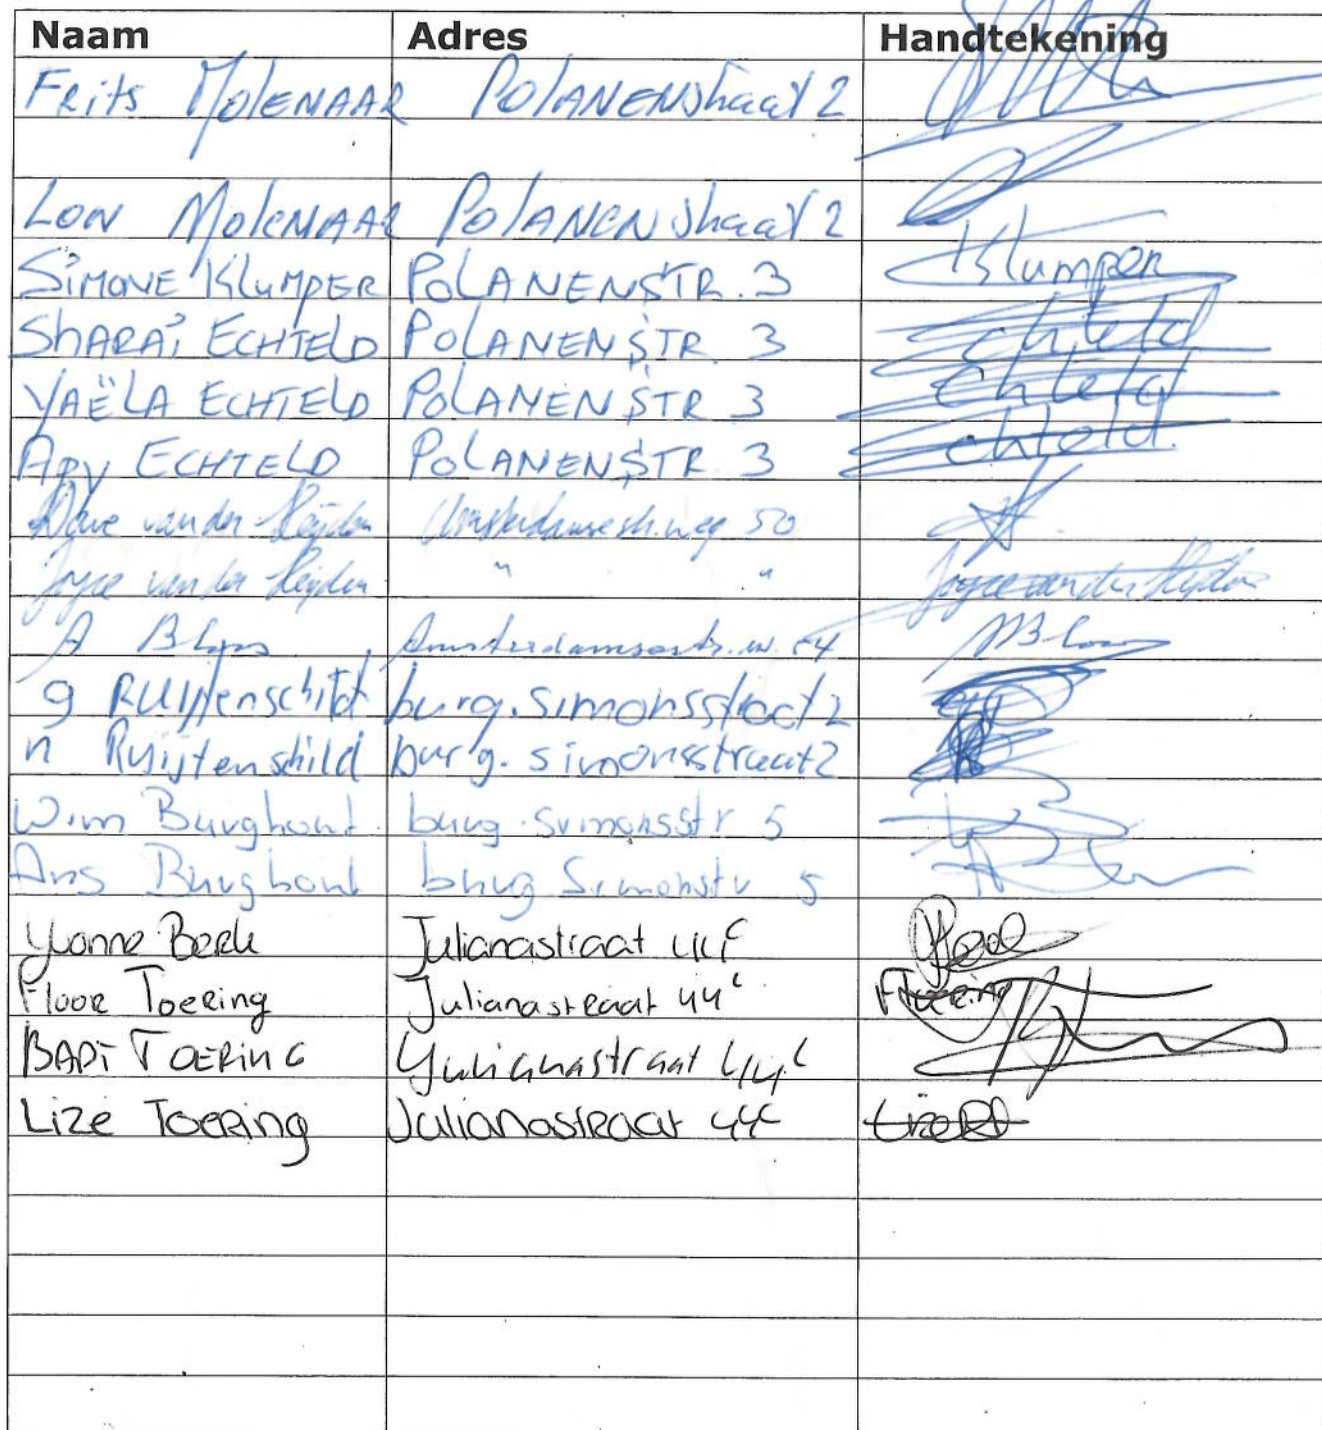 Naam Adres Handtekening
Frits Molenaar Polanenstraat 2
Low Molenaar Polanenstraat 2
Simone Klumper Polanenstr. 3 Klumper
Sharai Echteld Polanenstr 3 Echteld
Yaëla Echteld Polanenstr 3 Echteld
Echteld Polanenstr. 3 Echteld
van der Heijden Amsterdamsestr.weg 50
Joyce van der Heijden " " Joyce van der Heijden
A Amsterdamsestr.w.
g Ruijtenschild burg. Simonsstraat 2
n Ruijtenschild burg. simonsstraat 2
Wim Burghout burg. Simonsstr 5
Ans Burghout burg Simonstr 5
Yvonne Julianastraat 44c
Floor Toering Julianastraat 44c FToering
Toering Yulianastraat 44c
Lize Toering Julianastraat 44c